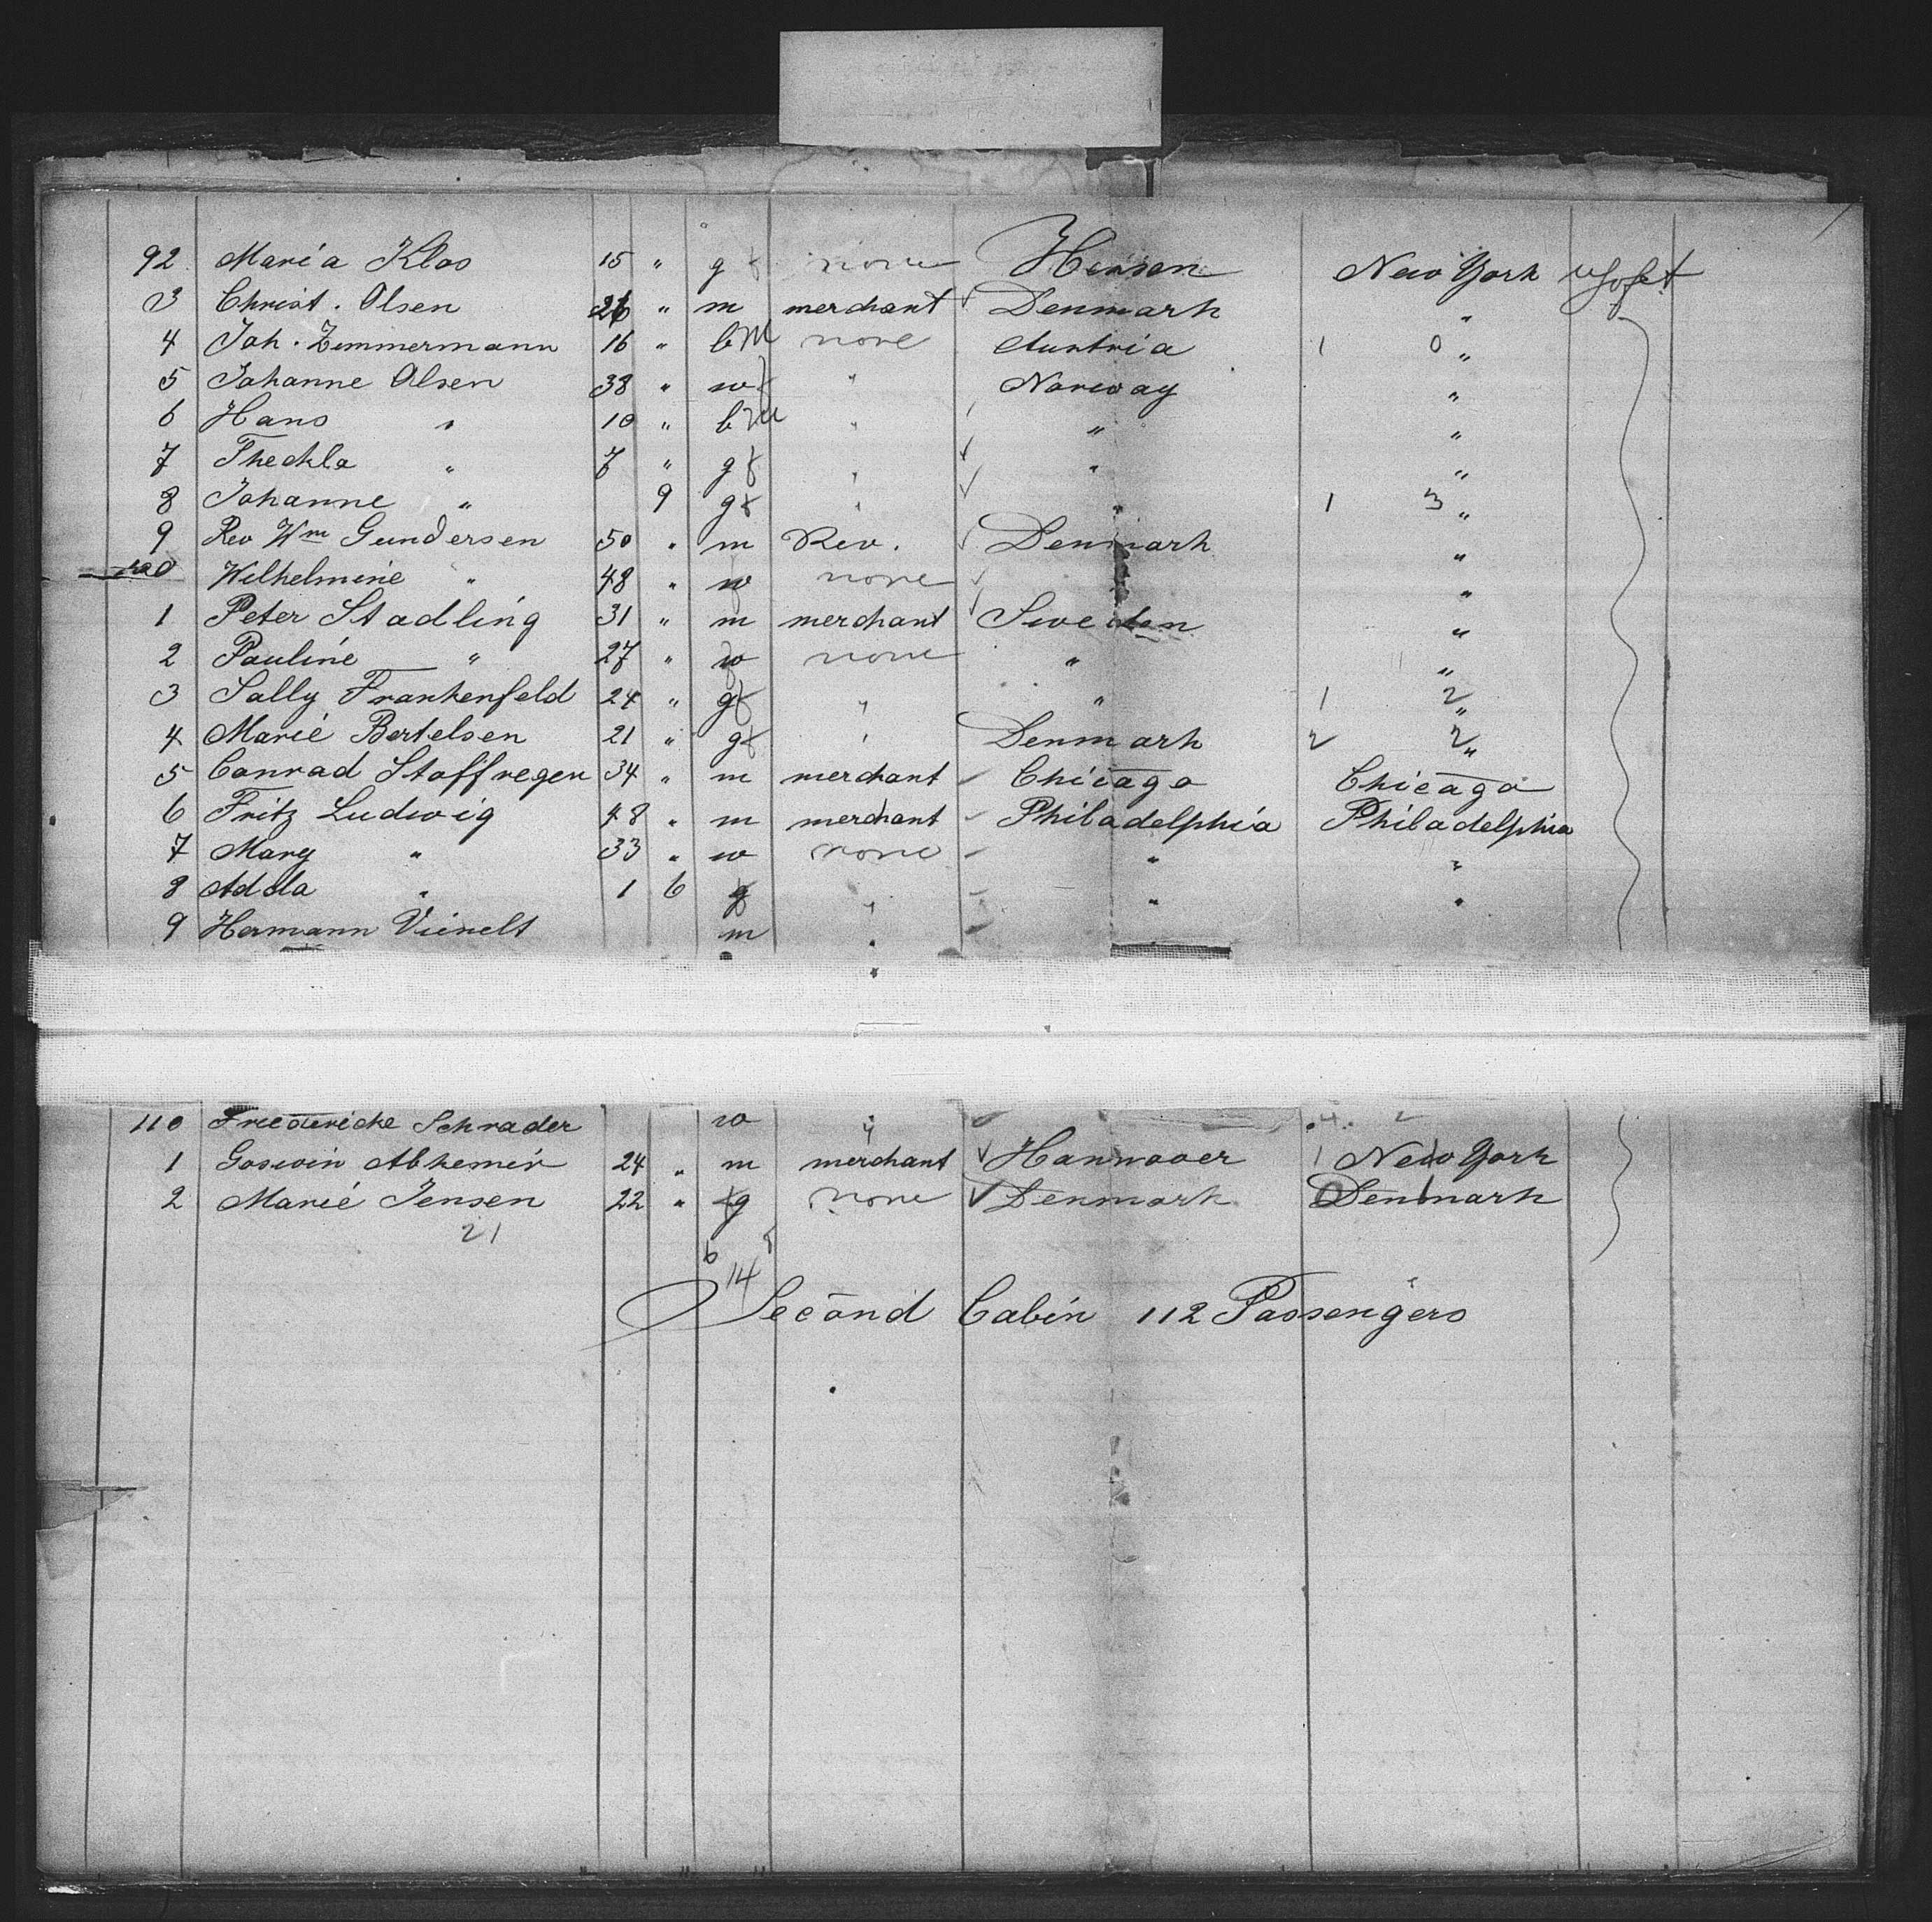 92 Maria Klos 15 " g f none Hessen New York
3 Christ. Olsen 26 " m merchant Denmark "
4 Joh. Zimmermann 16 " b M none Austria 1 0 "
5 Johanne Olsen 38 " w f " Norway "
6 Hans " 10 " b M " " "
7 Theckla " 7 " g f " " "
8 Johanne " 9 g f " " 1 3 "
9 Rev Wm Gundersen 50 " m Rev. Denmark "
100 Wilhelmine " 48 " w none "
1 Peter Stadling 31 " m merchant Sweden "
2 Pauline " 27 " w none " "
3 Sally Frankenfeld 24 " g f " " 1 2 "
4 Marie Bertelsen 21 " g f " Denmark 2 2 "
5 Conrad Stoffregen 34 " m merchant Chicago Chicago
6 Fritz Ludwig 48 " m merchant Philadelphia Philadelphia
7 Mary " 33 " w none " "
8 Adda " 1 6 g " " "
9 Hermann Vienelt m "
110 Friedericke Schrader w "
1 Goswin Abkemeir 24 " m merchant Hannover 1 New York
2 Marie Jensen 22 " g none Denmark Denmark
21
6 8
14
Second Cabin 112 Passengers